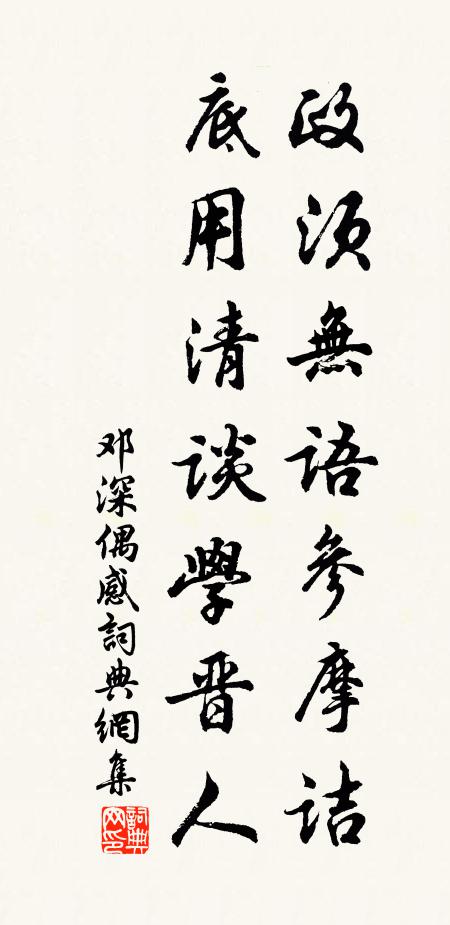 政须無語参摩詰
底用清談學晋人
邓深偶感詞典網集
詞典网印